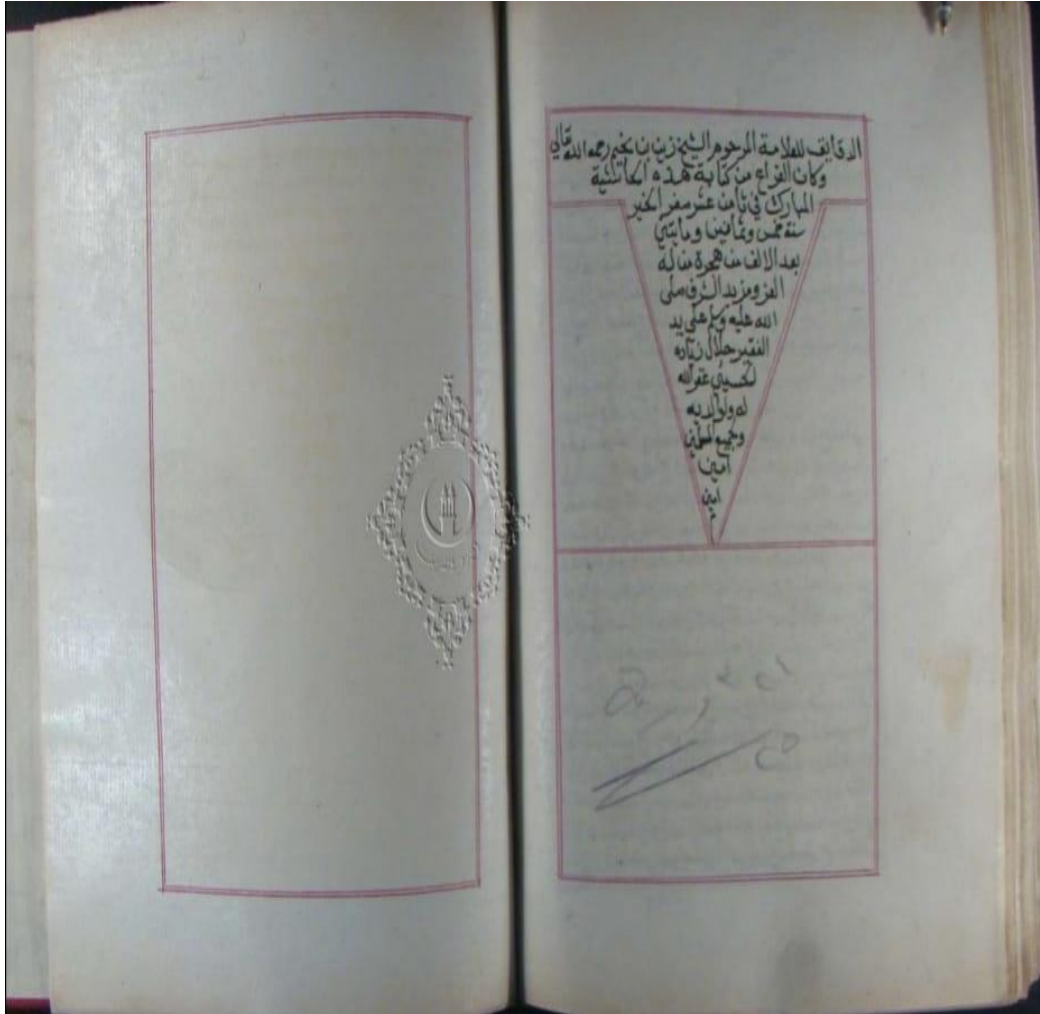 الدقايق للعلامة المرحوم الشيخ زين بن نجيم رحمه الله تعالى
وكان الفراغ من كتابة هذه الحاشية
المبارك في ثامن عشر صفر الخير
سنة خمس وثمانين ومايتي
بعد الالف من هجرة من له
العز ومزيد الشرف صلى
الله عليه وسلم على يد
الفقير جلال زياده
لحسيني غفر الله
له ولوالديه
وجميع المسلمين
امين
امين